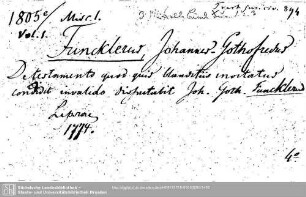 1805 e/ Misc. 1.
Vol. 1.
Funcklerus Johannes Gothofredus
De testamento quod quis blanditiis invitatus
condidit invalido disputabit Joh. Goth. Funcklerus
Lipsiae
1774.
4°
Sächsische Landesbibliothek -
Staats- und Universitätsbibliothek Dresden